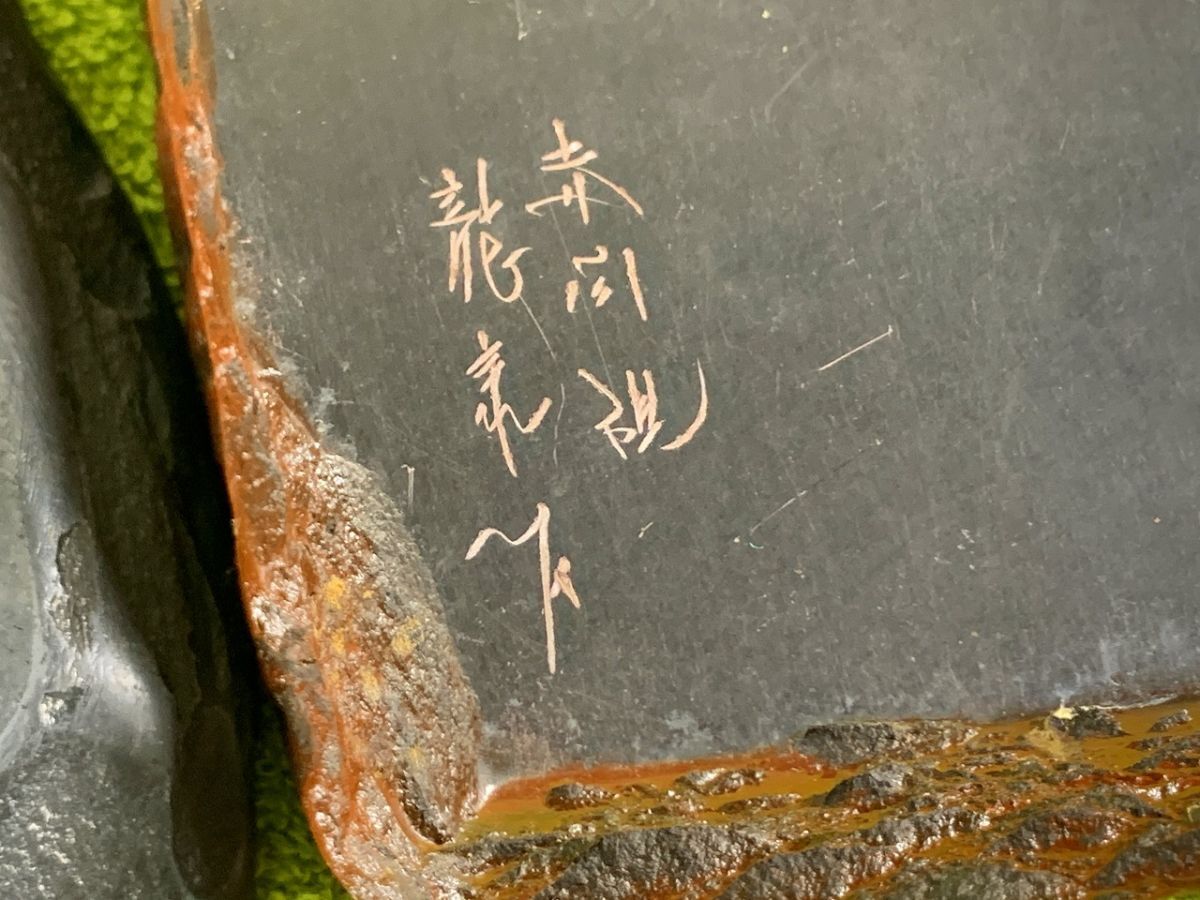 赤間硯
龍作